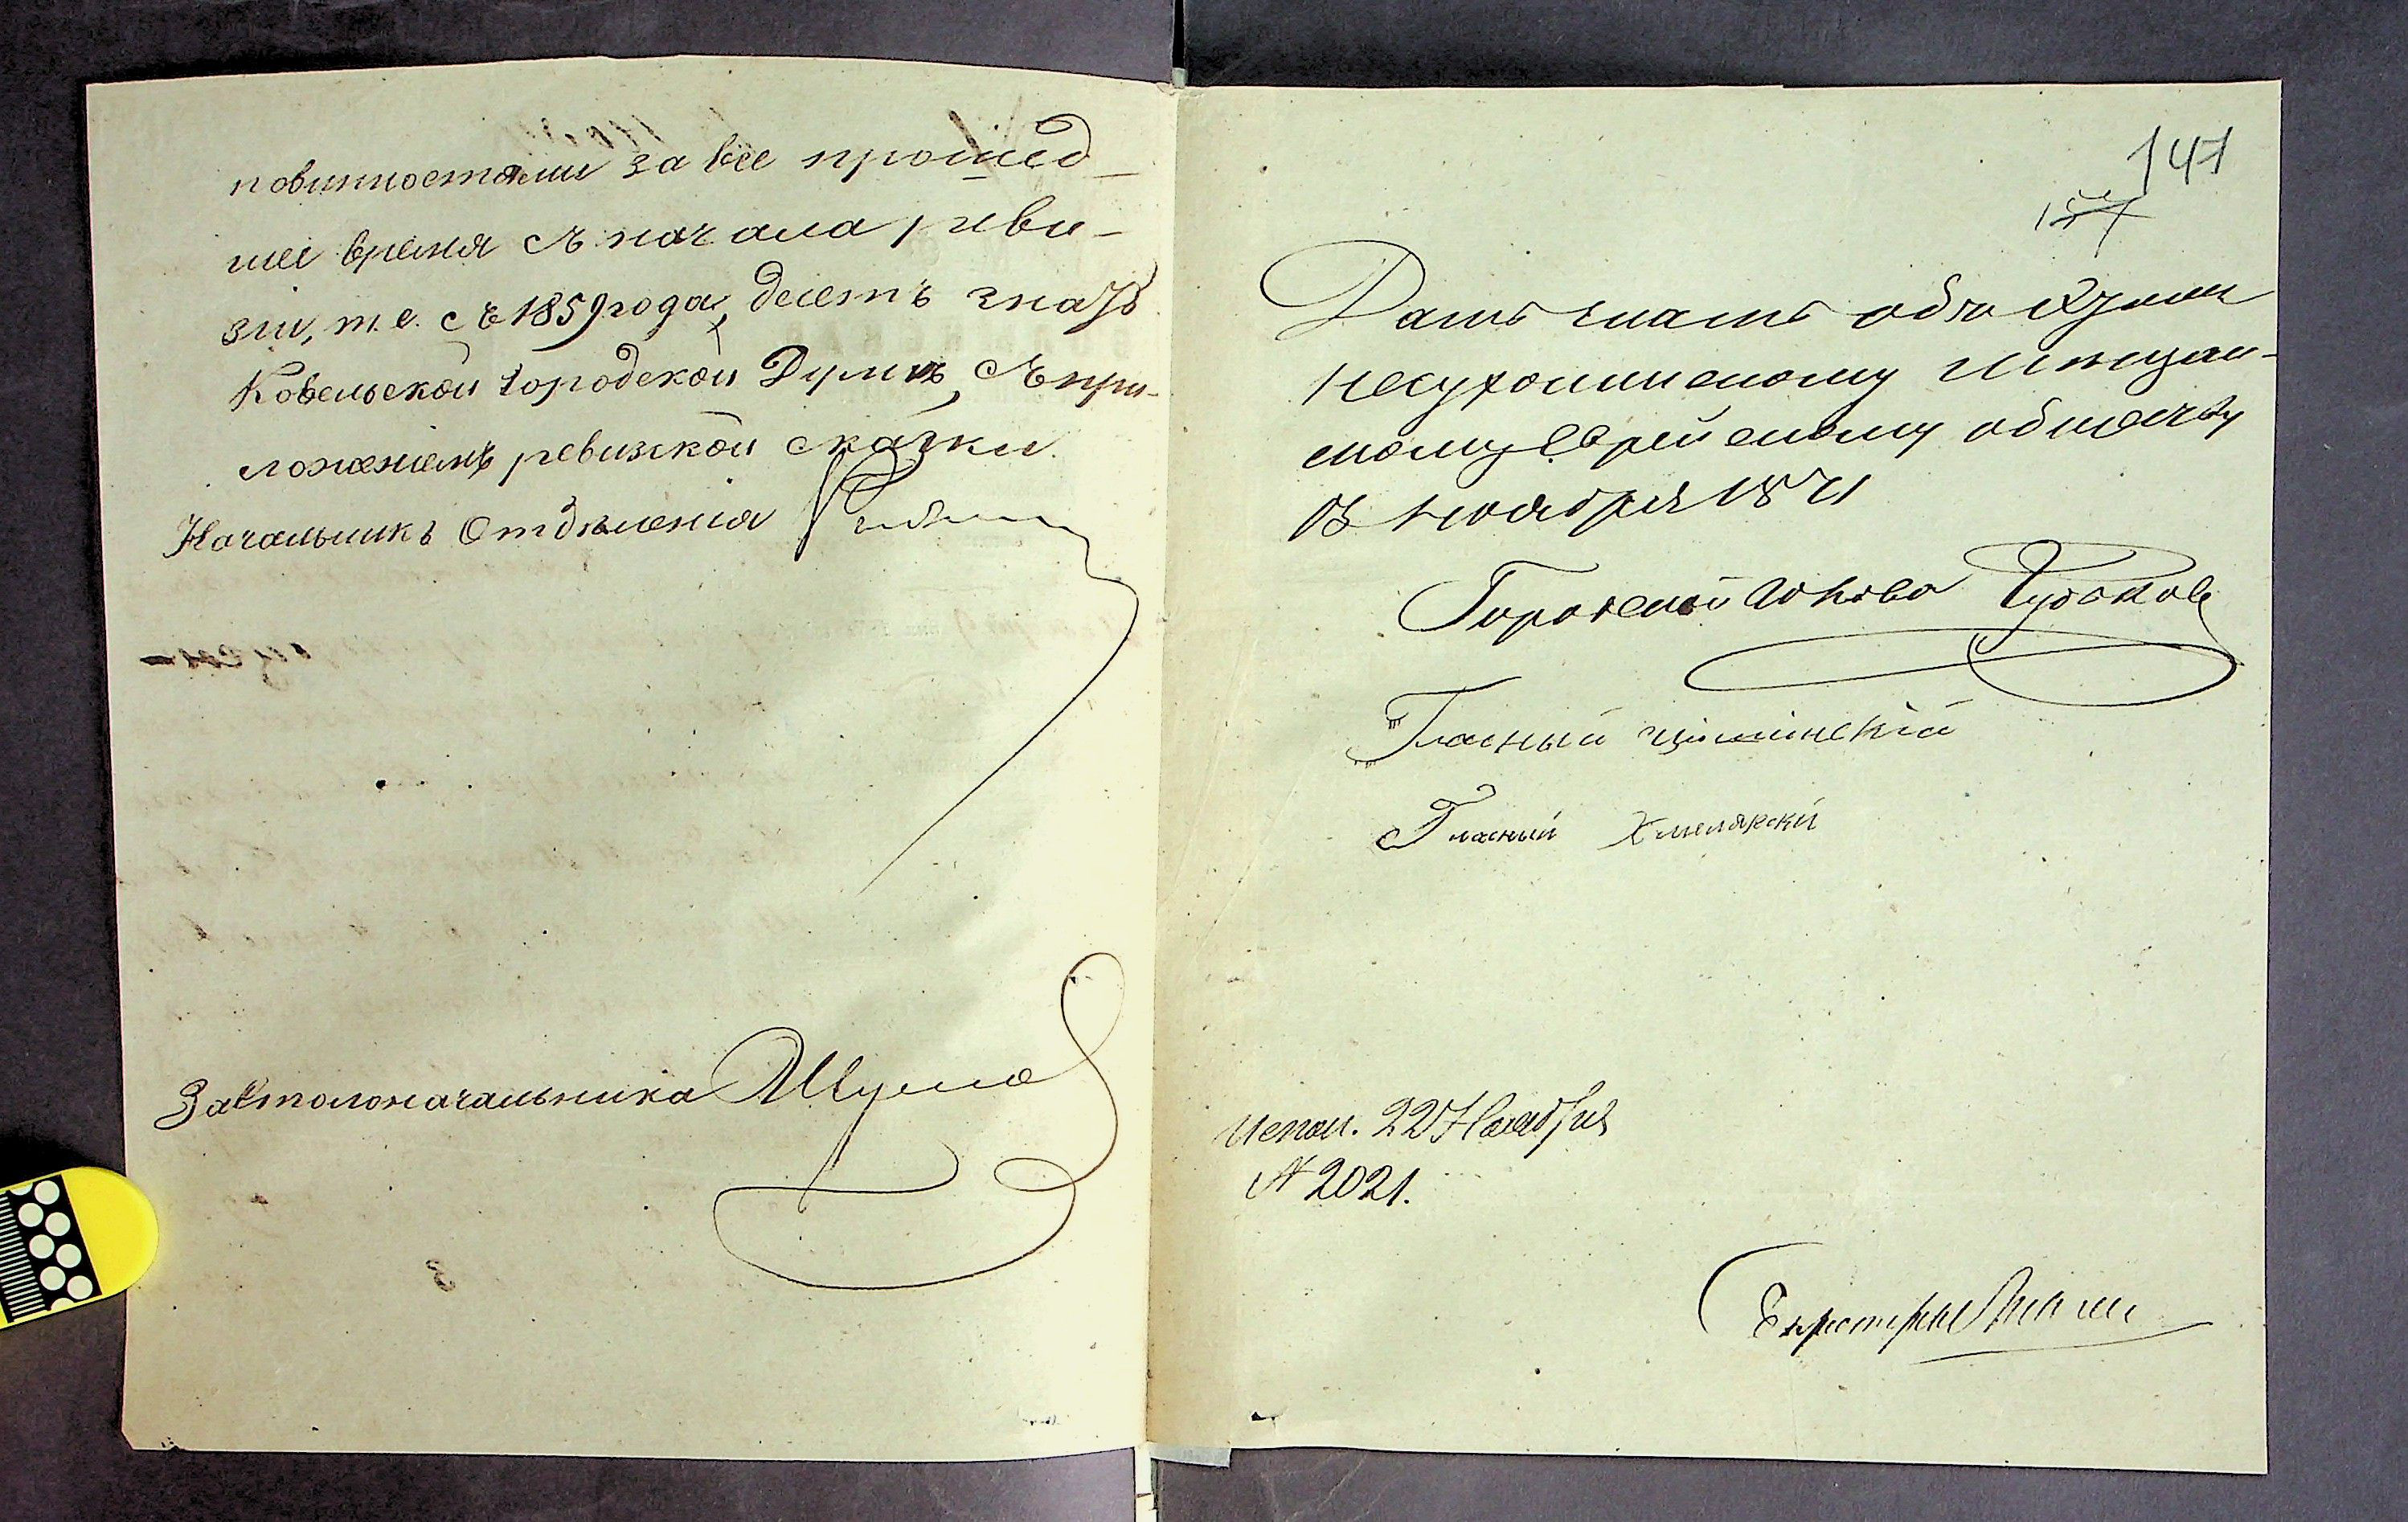 повинностями за все прошед-
шее время съ начала реви-
зіи, т.е. съ 1859 года, десетъ знать
Ковельской городской Думѣ, съ при-
ложеніемъ ревизской сказки.
Начальникъ Отдѣленія
За Столоначальника
141
157
Дать знать объ
мѣщан-
скому Еврейскому обществу
13 Ноября 1871
Городской голова
Гласный
Гласный Хмелярскй
Испол. 22 Ноября
№ 2021.